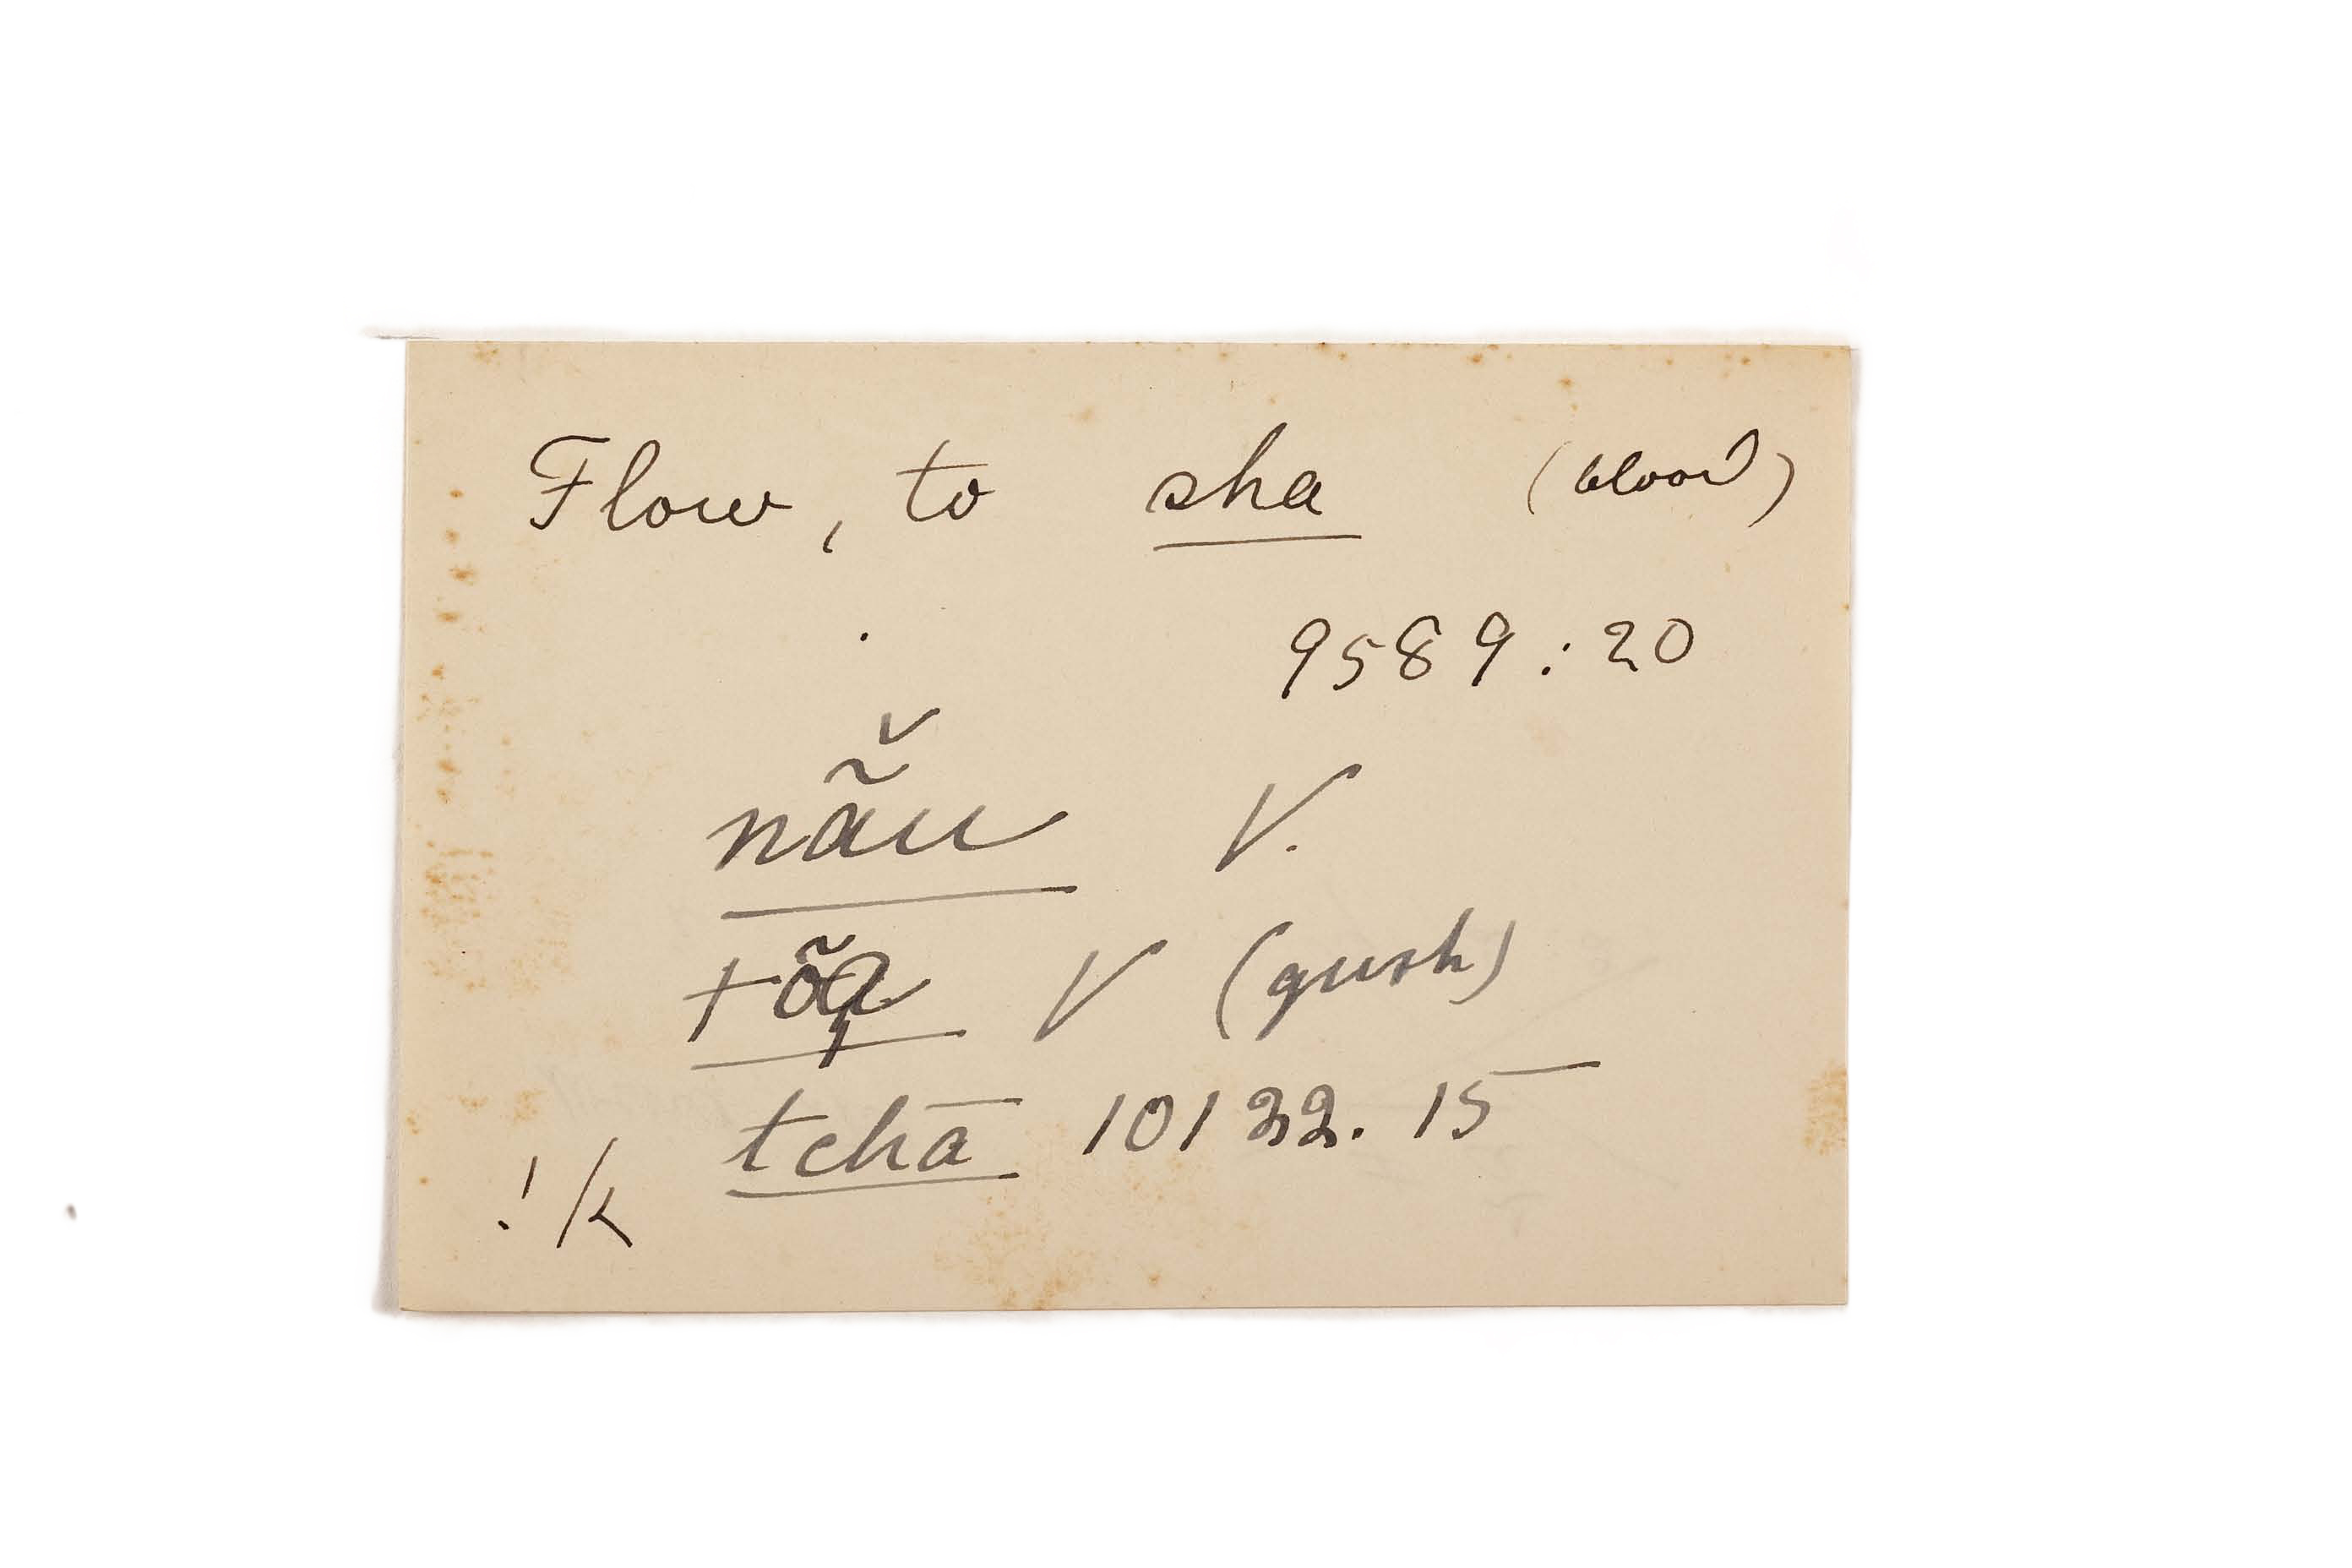 Flow, to sha (blood)
9589:20
nãŭ V.
tõa̗ V (gush)
tchā 10122.15
! /k